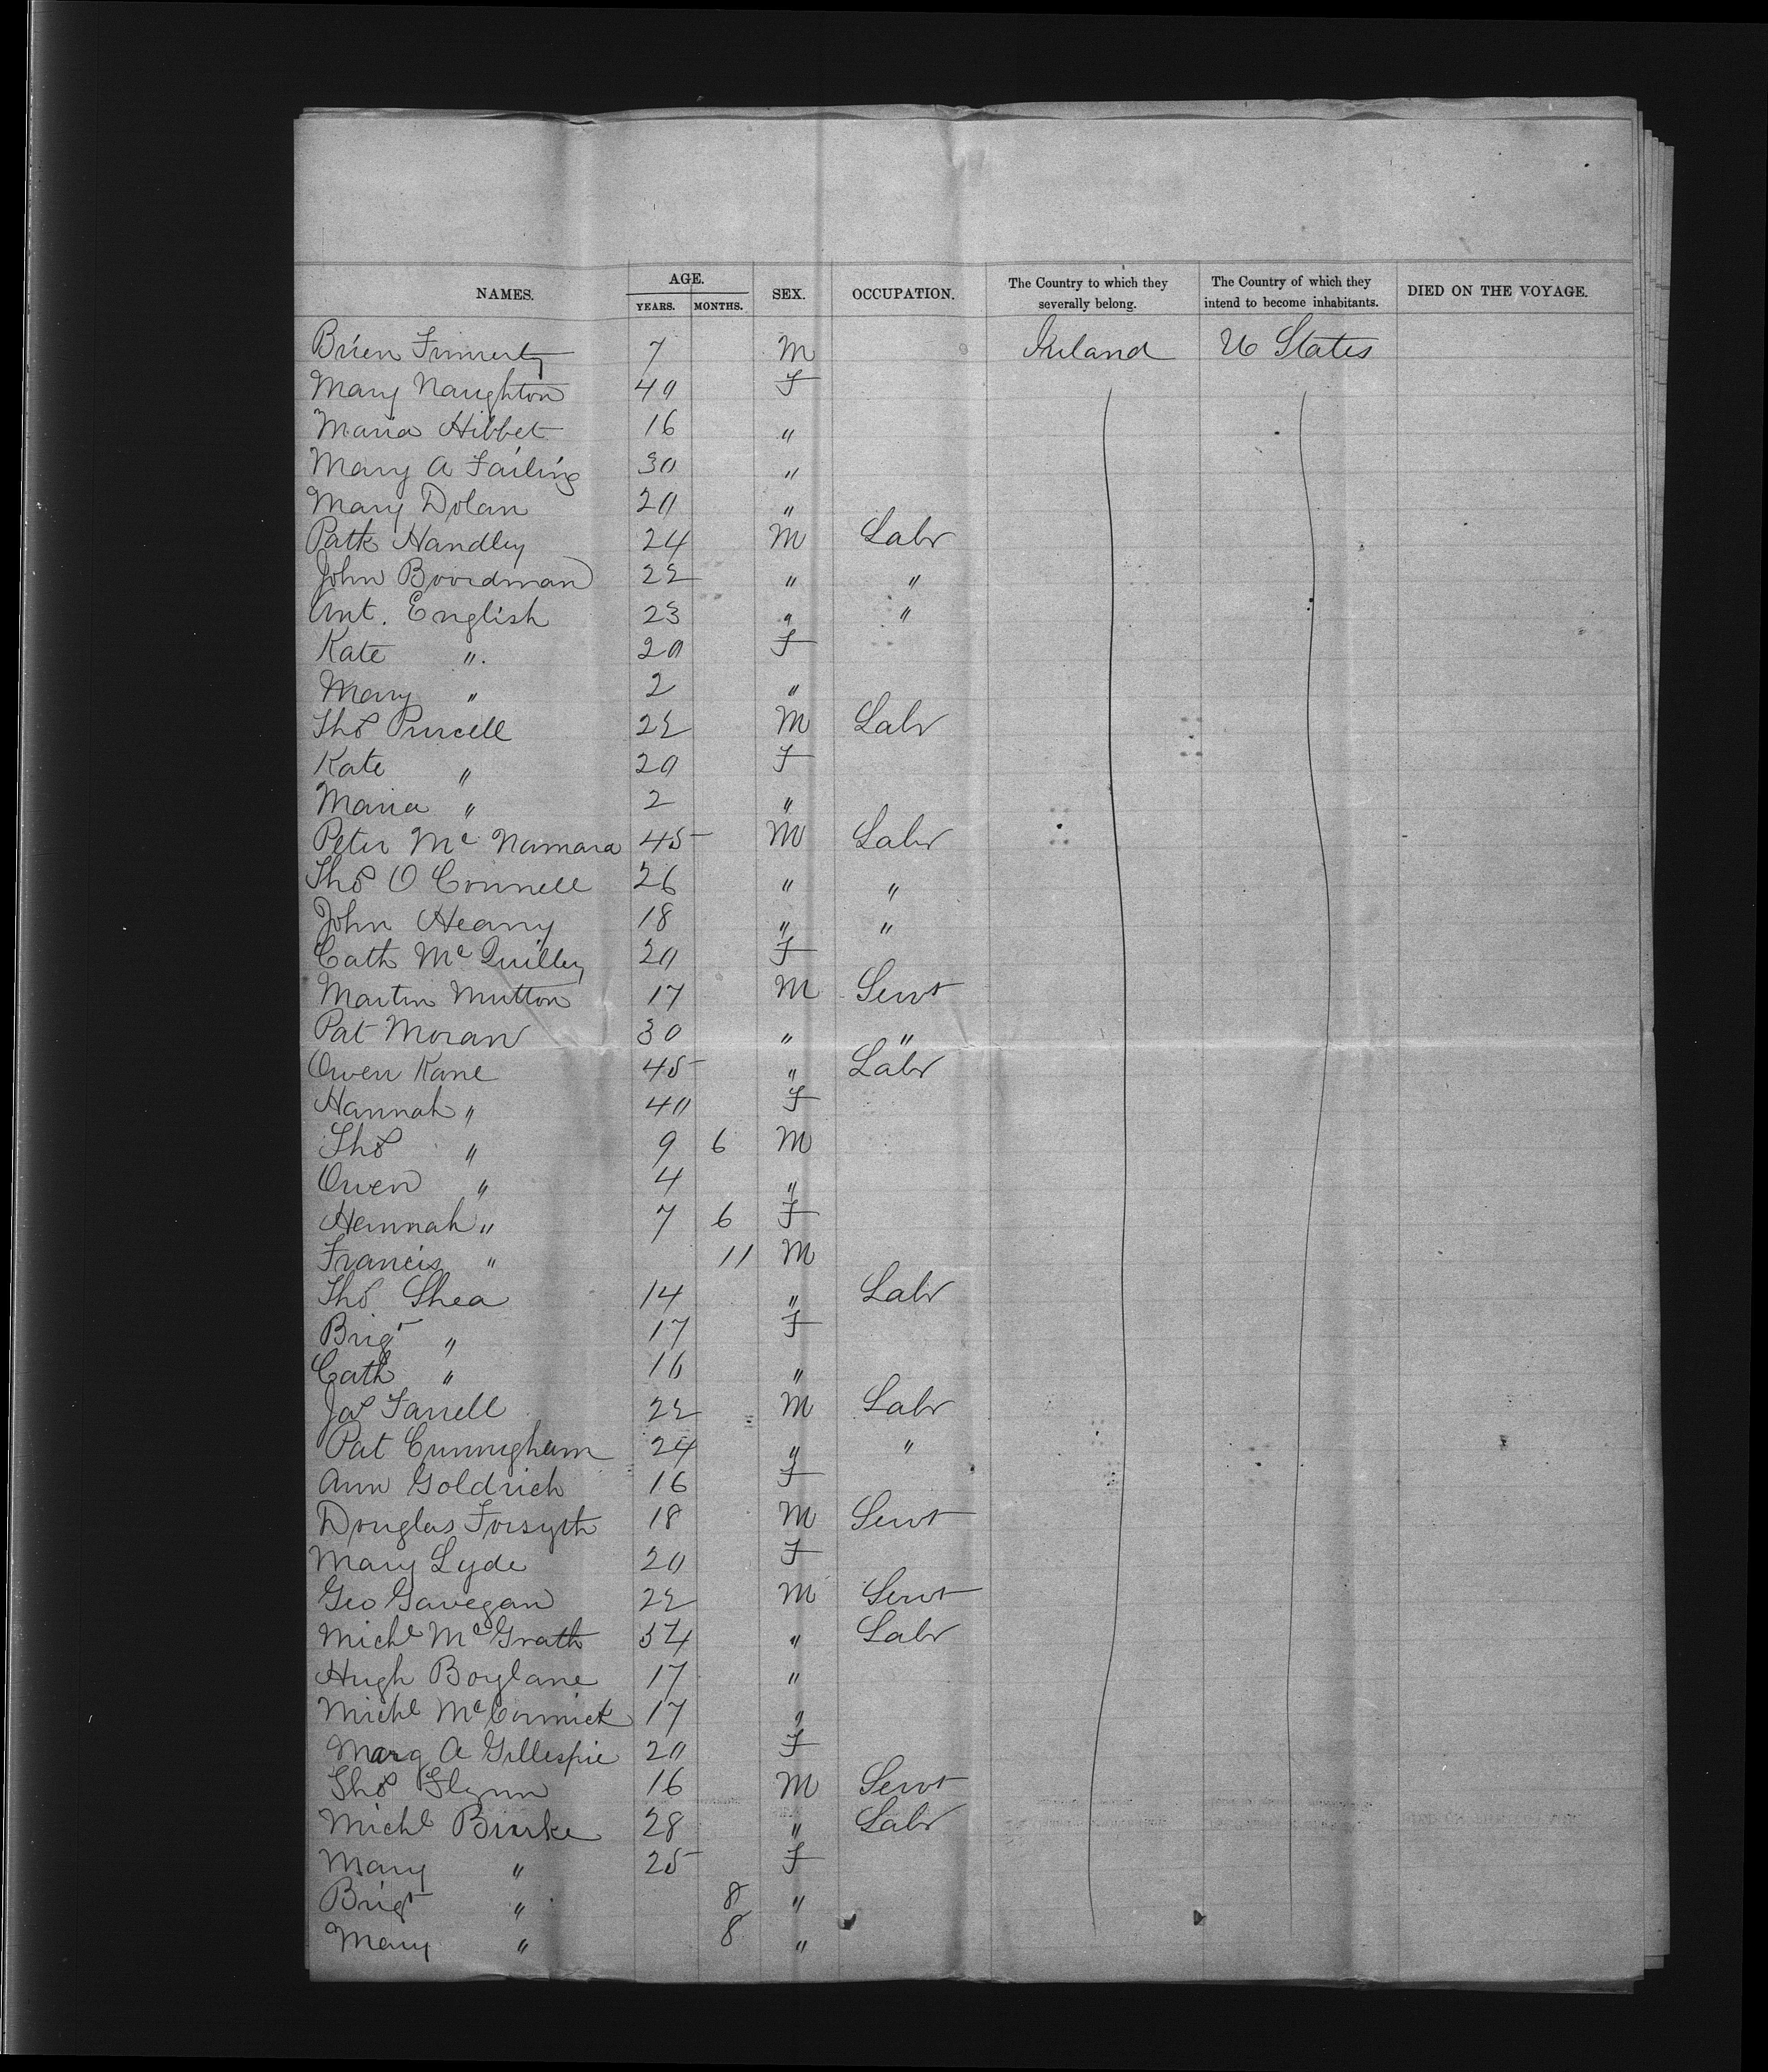 NAMES. AGE. SEX. OCCUPATION. The Country to which they severally belong. The Country of which they intend to become inhabitants. DIED ON THE VOYAGE.
YEARS. MONTHS.
Brien Finnerty 7 M Ireland U States
Mary Naughton 40 F
Maria Hibbet 16 "
Mary A Failing 30 "
Mary Dolan 20 "
Patk Handley 24 M Labr
John Boordman 22 " "
Ant. English 23 " "
Kate " 20 F
Mary " 2 "
Thos Purcell 22 M Labr
Kate " 20 F
Maria " 2 "
Peter Mc Namara 45 M Labr
Thos O Connell 26 " "
John Heany 18 " "
Cath McQuilley 20 F
Martin Mutton 17 M Servt
Pat Moran 30 " "
Owen Kane 45 " Labr
Hannah " 40 F
Thos " 9 6 M
Owen " 4 "
Hannah " 7 6 F
Francis " 11 M
Thos Shea 14 " Labr
Brigt " 17 F
Cath " 16 "
Jas Farrell 22 M Labr
Pat Cunnigham 24 " "
Ann Goldrich 16 F
Douglas Forsyth 18 M Servt
Mary Lyde 20 F
Geo Gavegan 22 M Servt
Michl McGrath 34 " Labr
Hugh Boylane 17 "
Michl McCormick 17 "
Marg A Gillespie 20 F
Thos Flynn 16 M Servt
Michl Burke 28 " Labr
Mary " 25 F
Brigt " 8 "
Mary " 8 "